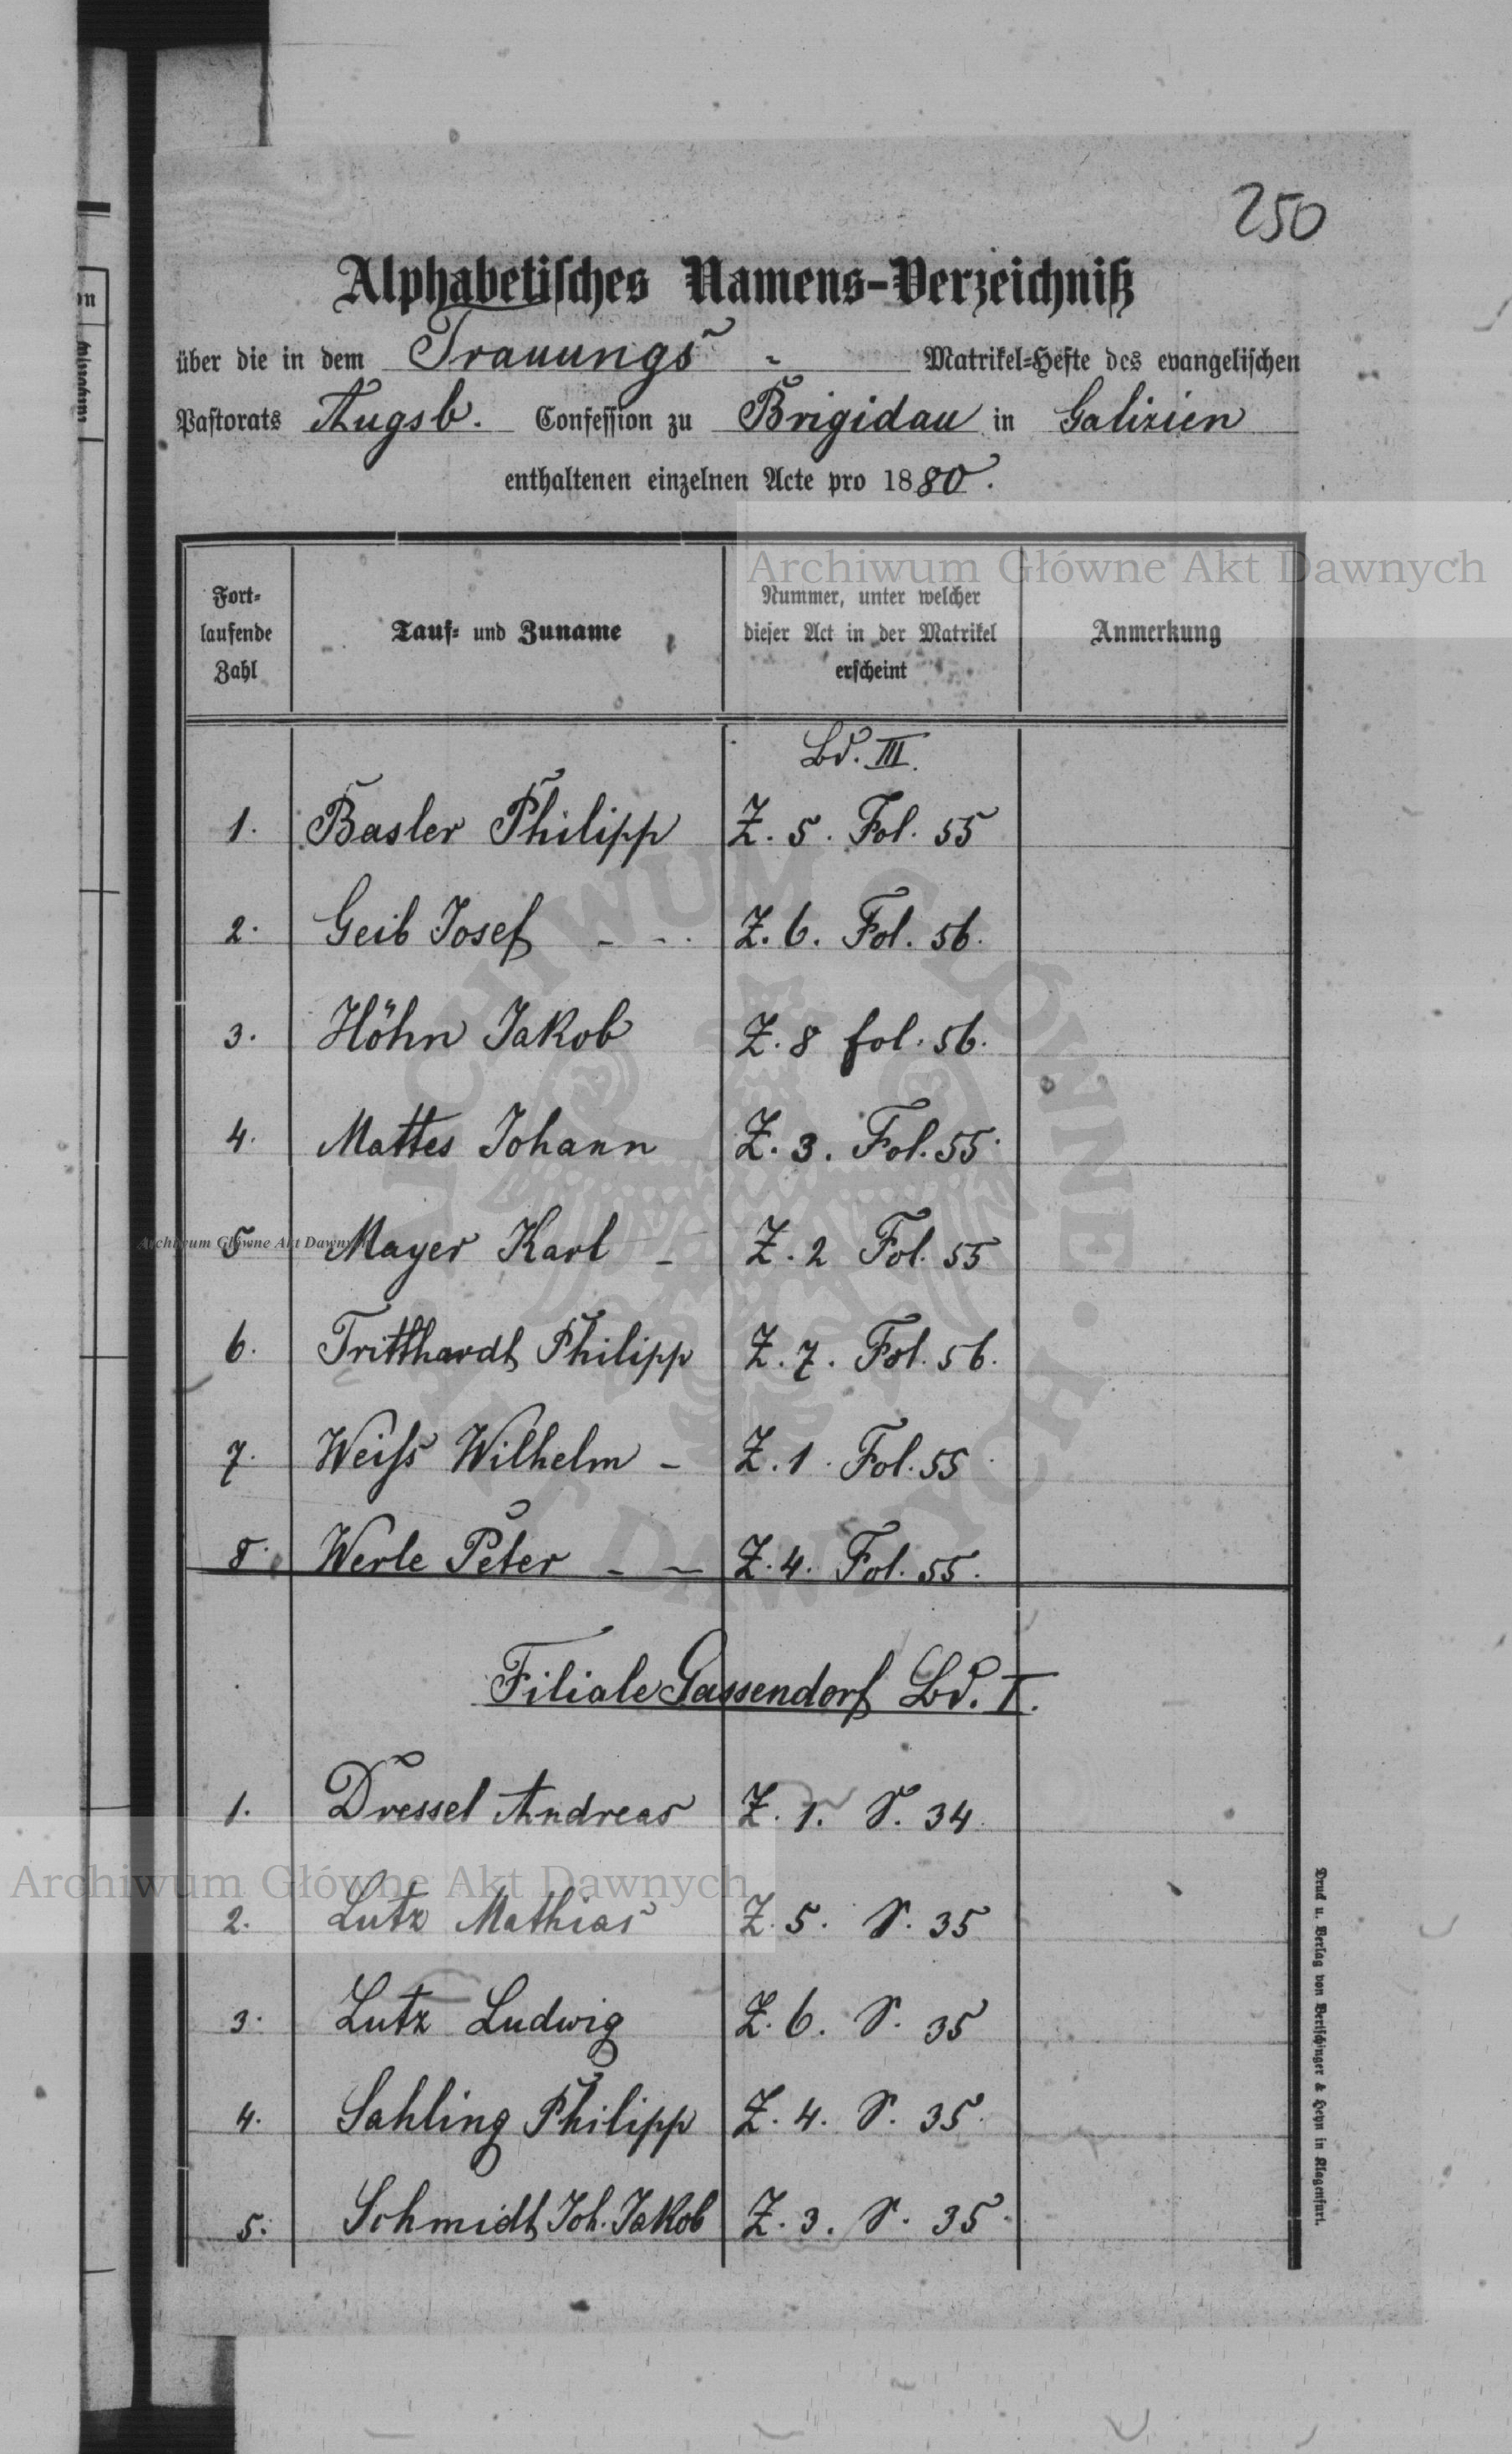 250
Alphabetisches Namens-Verzeichniß
über die in dem Trauungs - Matrikel-Hefte des evangelischen
Pastorats Augsb. Confession zu Brigidau in Galizien
enthaltenen einzelnen Acte pro 1880.
Archiwum Główne Akt Dawnych
Fort-
laufende
Zahl
Tauf- und Zuname
Nummer, unter welcher
dieser Act in der Matrikel
erscheint
Anmerkung
Bd. III.
1. Basler Philipp Z. 5. Fol. 55
2. Geib Josef - - - Z. 6. Fol. 56.
3. Höhn Jakob Z. 8 fol. 56.
4. Mattes Johann Z. 3. Fol. 55.
5 Mayer Karl - Z. 2 Fol. 55
Archiwum Główne Akt Dawnych
6. Tritthardt Philipp Z. 7. Fol. 56.
7. Weiſs Wilhelm - Z. 1. Fol. 55
8. Werle Peter - - Z. 4. Fol. 55.
ARCHIWUM GŁÓWNE · AKT DAWNYCH ·
Filiale Gassendorf Bd. I.
1. Dressel Andreas Z. 1. S. 34.
Archiwum Główne Akt Dawnych
2. Lutz Mathias Z. 5. S. 35
3. Lutz Ludwig Z. 6. S. 35
4. Sahling Philipp Z. 4. S. 35.
5. Schmidt Joh. Jakob Z. 3. S. 35.
Druck u. Verlag von Bertschinger & Heyn in Klagenfurt.